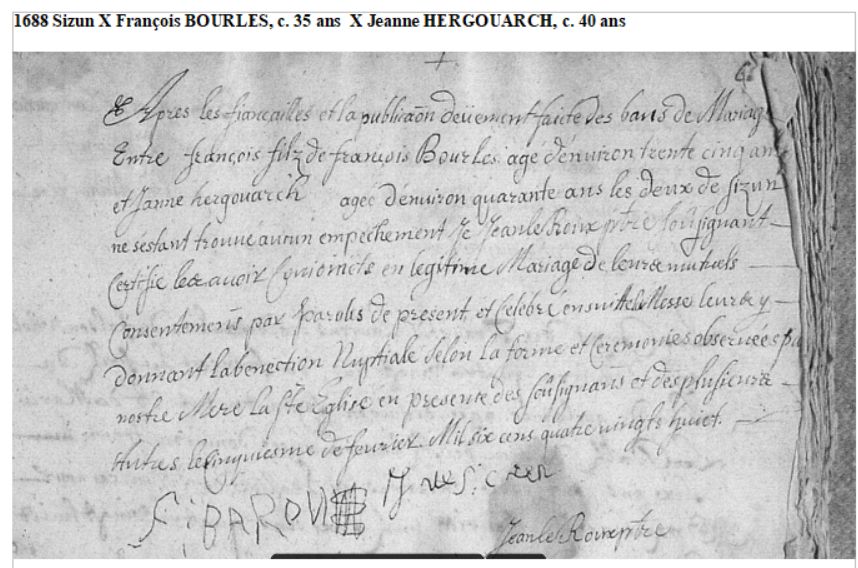 1688 Sizun X François BOURLES, c. 35 ans X Jeanne HERGOUARCH, c. 40 ans
Apres les fiancailles et la publicaõn deüement faitte des bans de Mariage
Entre françois filz de francois Bourles agé d'enuiron trente cinq ans
et Janne hergouarch agee d'enuiron quarante ans les deux de sizun
ne sestant trouue aucun empechement Je Jean le Roux ptre soussignant
Certifie les auoir Conioincts en legitime Mariage de leurs mutuels
Consentements par Parolis de present et Celebré ensuitte la Messe leurs y
donnant la benection Nuptiale selon la forme et Ceremonies observées pa
nostre Mere la ste Eglise en presente des soussignans et des plusieurs
Autres le Cinquiesme de feurier Mil six cens quatre vingts huict.
Jean le Roux ptre